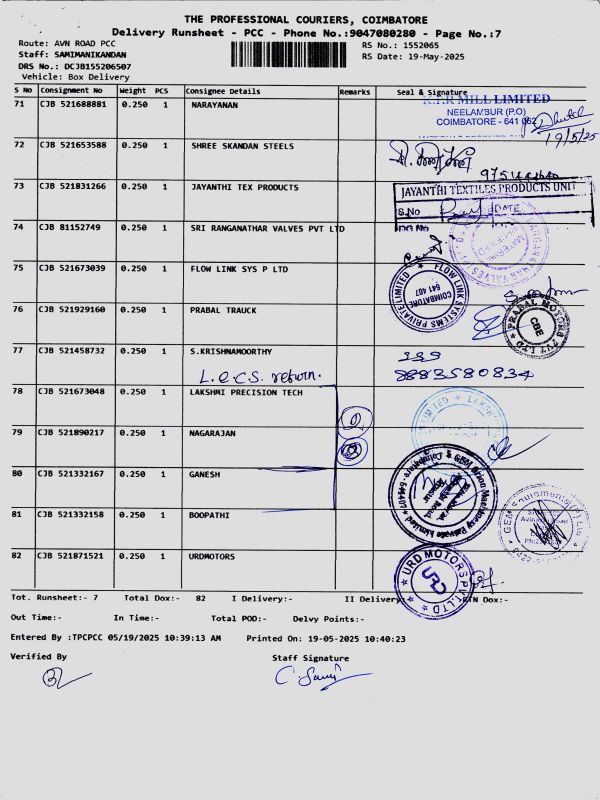 THE PROFESSIONAL COURIERS, COIMBATORE
Delivery Runsheet - PCC - Phone No.:9047080280 - Page No.:7
Route: AVN ROAD PCC
RS No.: 1552065
Staff: SAMIMANIKANDAN
RS Date: 19-May-2025
DRS No.: DCJB155206507
Vehicle: Box Delivery
S No Consignment No Weight PCS Consignee Details Remarks Seal & Signature
71 CJB 521688881 0.250 1 NARAYANAN
K.T.R MILL LIMITED
NEELAMBUR (P.O)
COIMBATORE - 641 062
19/5/25
72 CJB 521653588 0.250 1 SHREE SKANDAN STEELS
73 CJB 521831266 0.250 1 JAYANTHI TEX PRODUCTS
JAYANTHI TEXTILES PRODUCTS UNIT
S.No DATE
74 CJB 81152749 0.250 1 SRI RANGANATHAR VALVES PVT LTD
DG No
75 CJB 521673039 0.250 1 FLOW LINK SYS P LTD
FLOW LINK SYSTEMS PRIVATE LIMITED
COIMBATORE
641 407
76 CJB 521929160 0.250 1 PRABAL TRAUCK
PRABAL MOTORS PVT LTD
CBE
77 CJB 521458732 0.250 1 S.KRISHNAMOORTHY
L.e.C.S. return.
8883580834
78 CJB 521673048 0.250 1 LAKSHMI PRECISION TECH
79 CJB 521890217 0.250 1 NAGARAJAN
80 CJB 521332167 0.250 1 GANESH
81 CJB 521332158 0.250 1 BOOPATHI
GEM Equipments (P) Ltd
82 CJB 521871521 0.250 1 URDMOTORS
URD MOTORS PVT.LTD
URD
Tot. Runsheet:- 7 Total Dox:- 82 I Delivery:- II Delivery:- RTN Dox:-
Out Time:- In Time:- Total POD:- Delvy Points:-
Entered By :TPCPCC 05/19/2025 10:39:13 AM Printed On: 19-05-2025 10:40:23
Verified By Staff Signature